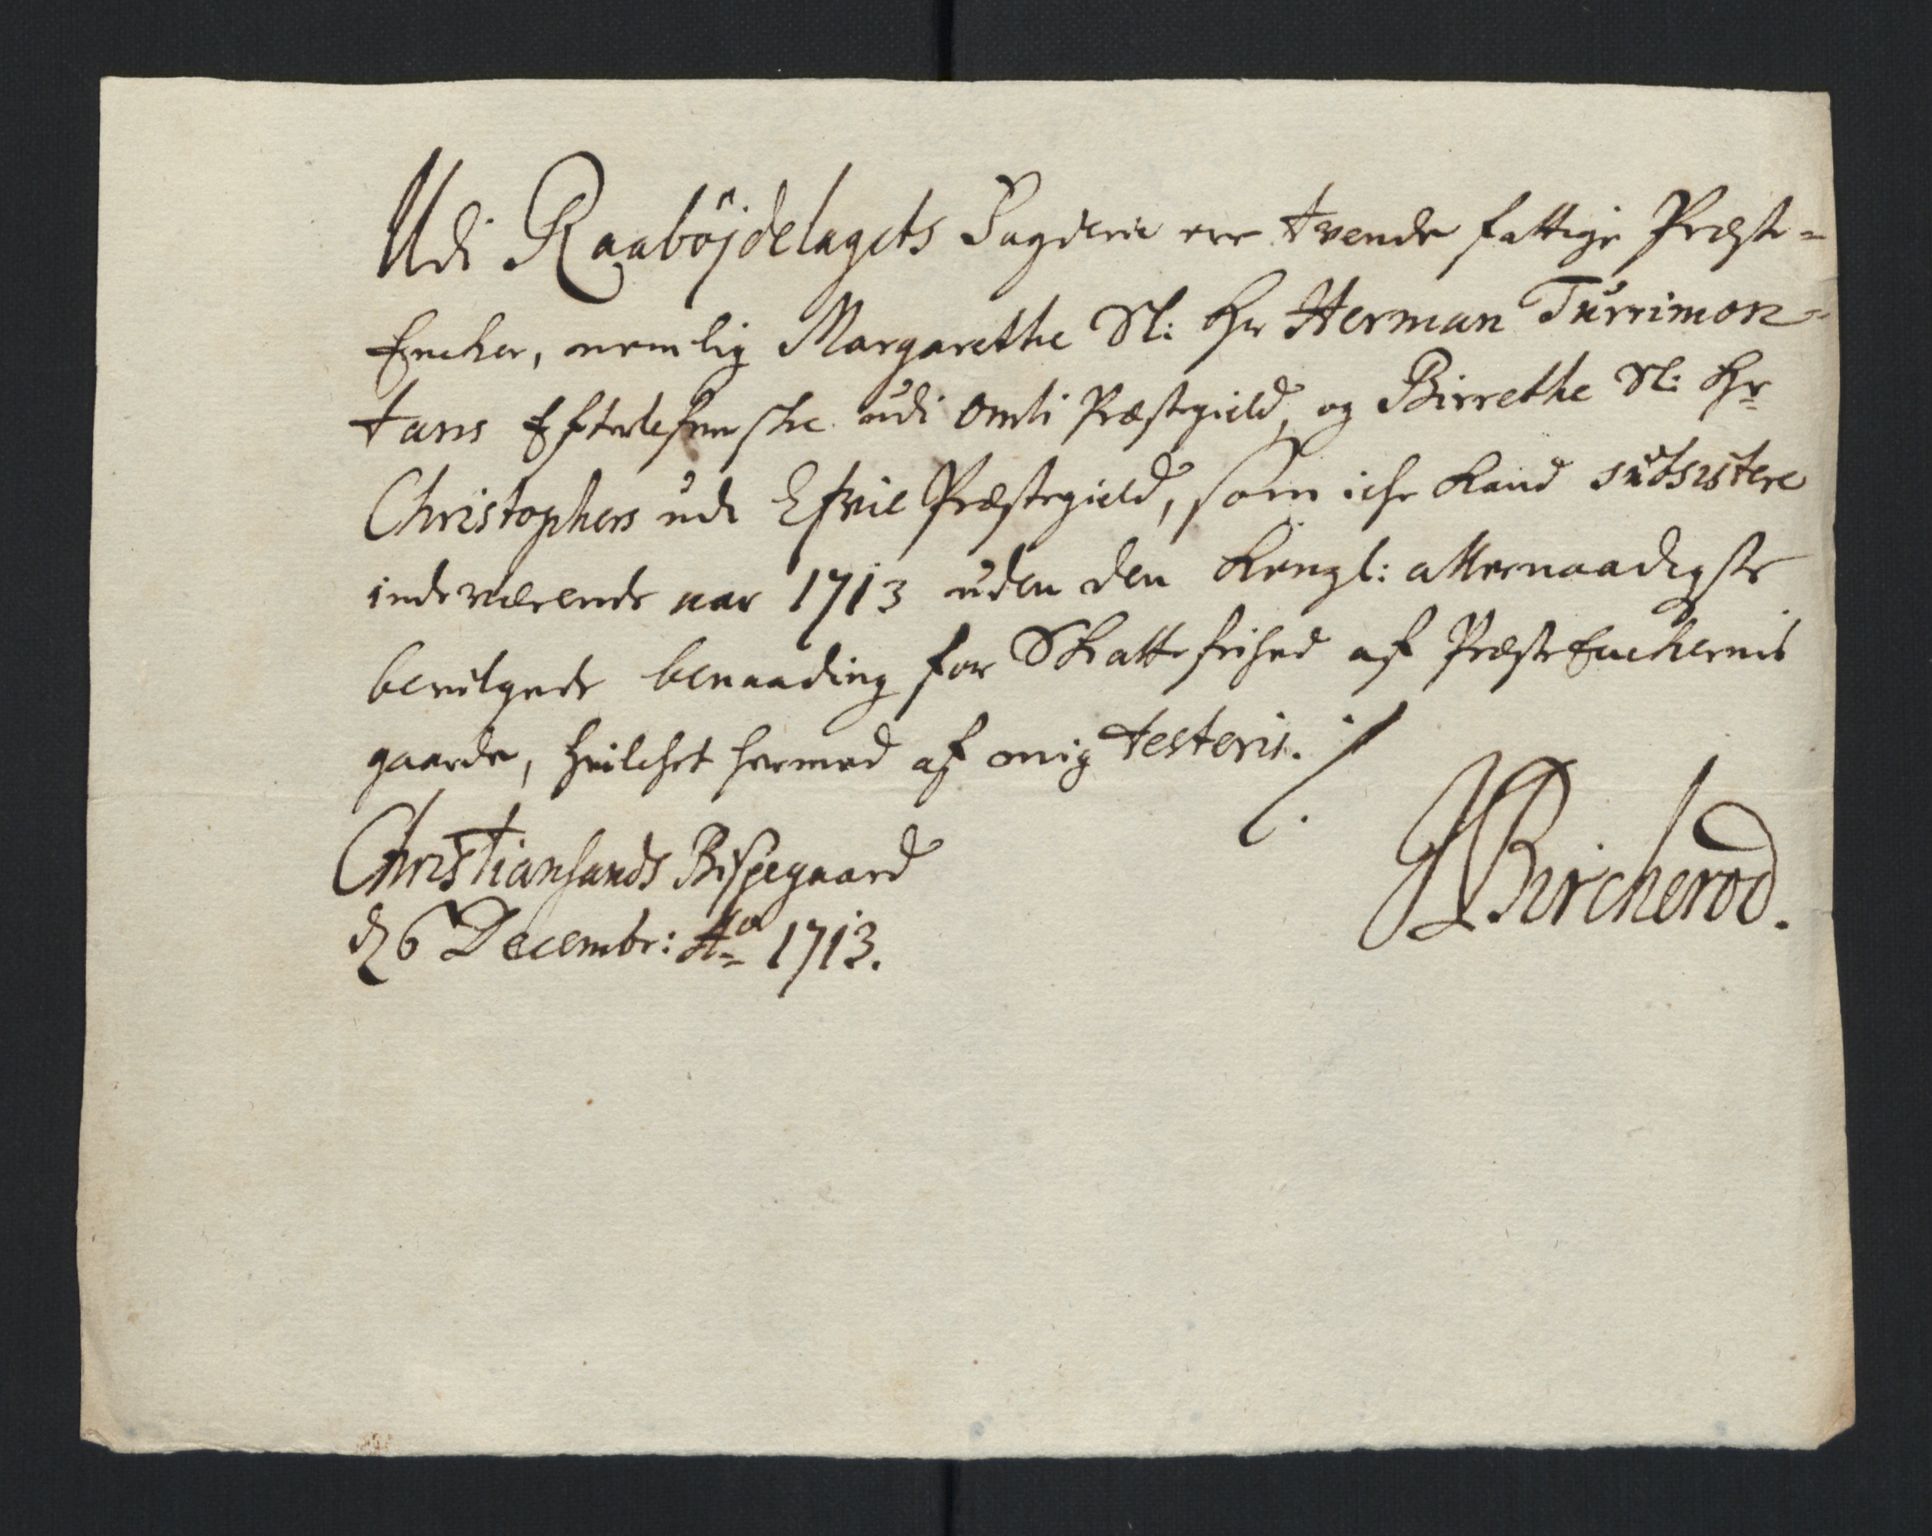 Udi Raabøjdelagets Fogderie ere tvende fattige Præste-
Encher, nemlig Margarethe Sl: Hr Herman Turrimon-
tans Efterlefverske udi Omli Præstegield, og Birrethe Sl: Hr
Christophers udi Præstegield, som iche kand subsistere
indeværende aar 1713 uden den Kongl: allernaadigste
bevilgede benaading for Skatte frihed af PræsteEnchernis
gaarde, hvilchet hermed af mig testeris. ./.
Christiansands Bispegaard
d 6 Decembr: Ao 1713.
JBircherod.